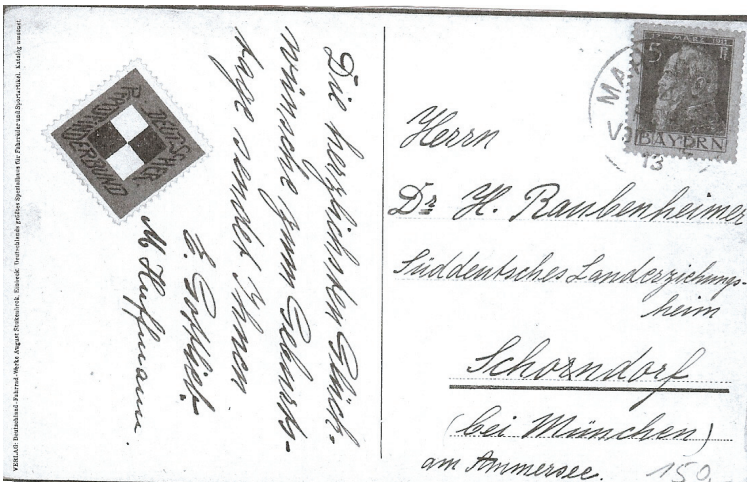 VERLAG: Deutschland-Fahrrad-Werke August Stukenbrok, Einbeck. Deutschlands grösstes Spezialhaus für Fahrräder und Sportartikel. Katalog umsonst.
DEUTSCHER
PFADFINDERBUND
Die herzlichsten Glück-
wünsche zum Geburts-
tage sendet Ihnen
E. Gottlieb.
M. Huffmann.
5 Pf
BAYERN
MAR
13
Herrn
Dr H. Raubenheimer
Süddeutsches Landerziehungs-
heim
Schorndorf
(bei München)
am Ammersee.
150.